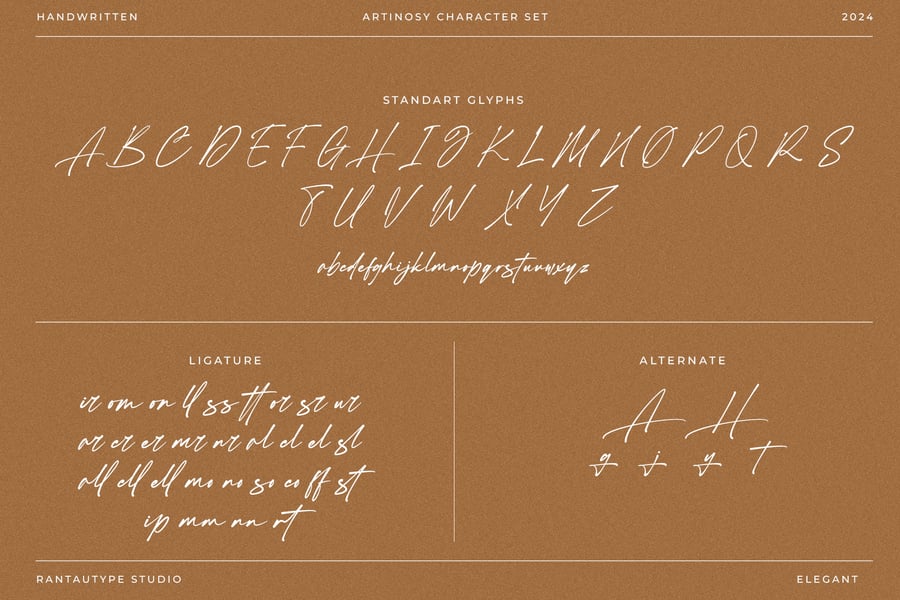 HANDWRITTEN
ARTINOSY CHARACTER SET
2024
STANDART GLYPHS
A B C D E F G H I J K L M N O P Q R S
T U V W X Y Z
abcdefghijklmnopqrstuvwxyz
LIGATURE
ir om on ll ss tt or sr ur
ar cr er mr nr al cl el sl
all cll ell mo no so co ff st
ip mm nn rt
ALTERNATE
A H
g j y T
RANTAUTYPE STUDIO
ELEGANT